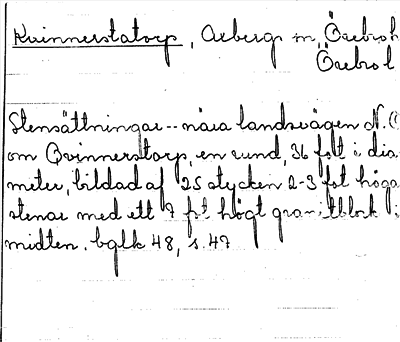 Kvinnerstatorp, Axbergs sn, Örebro h
Örebro l
Stensättningar -- nära landsvägen N.O
om Qvinnerstorp, en rund, 36 fot i dia-
meter, bildad af 25 stycken 2-3 fot höga
stenar med ett 7 fot högt granitblock i
midten. bglk 48, s. 47